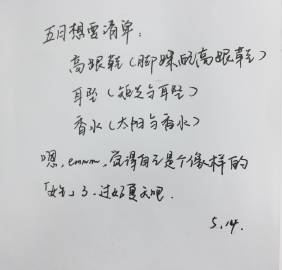 五月想要清单：
高跟鞋（脚踝配高跟鞋）
耳坠（短发与耳坠）
香水（太阳与香水）
嗯，emmm，觉得自己是个像样的
「女生」了，过好夏天吧．
5.14.